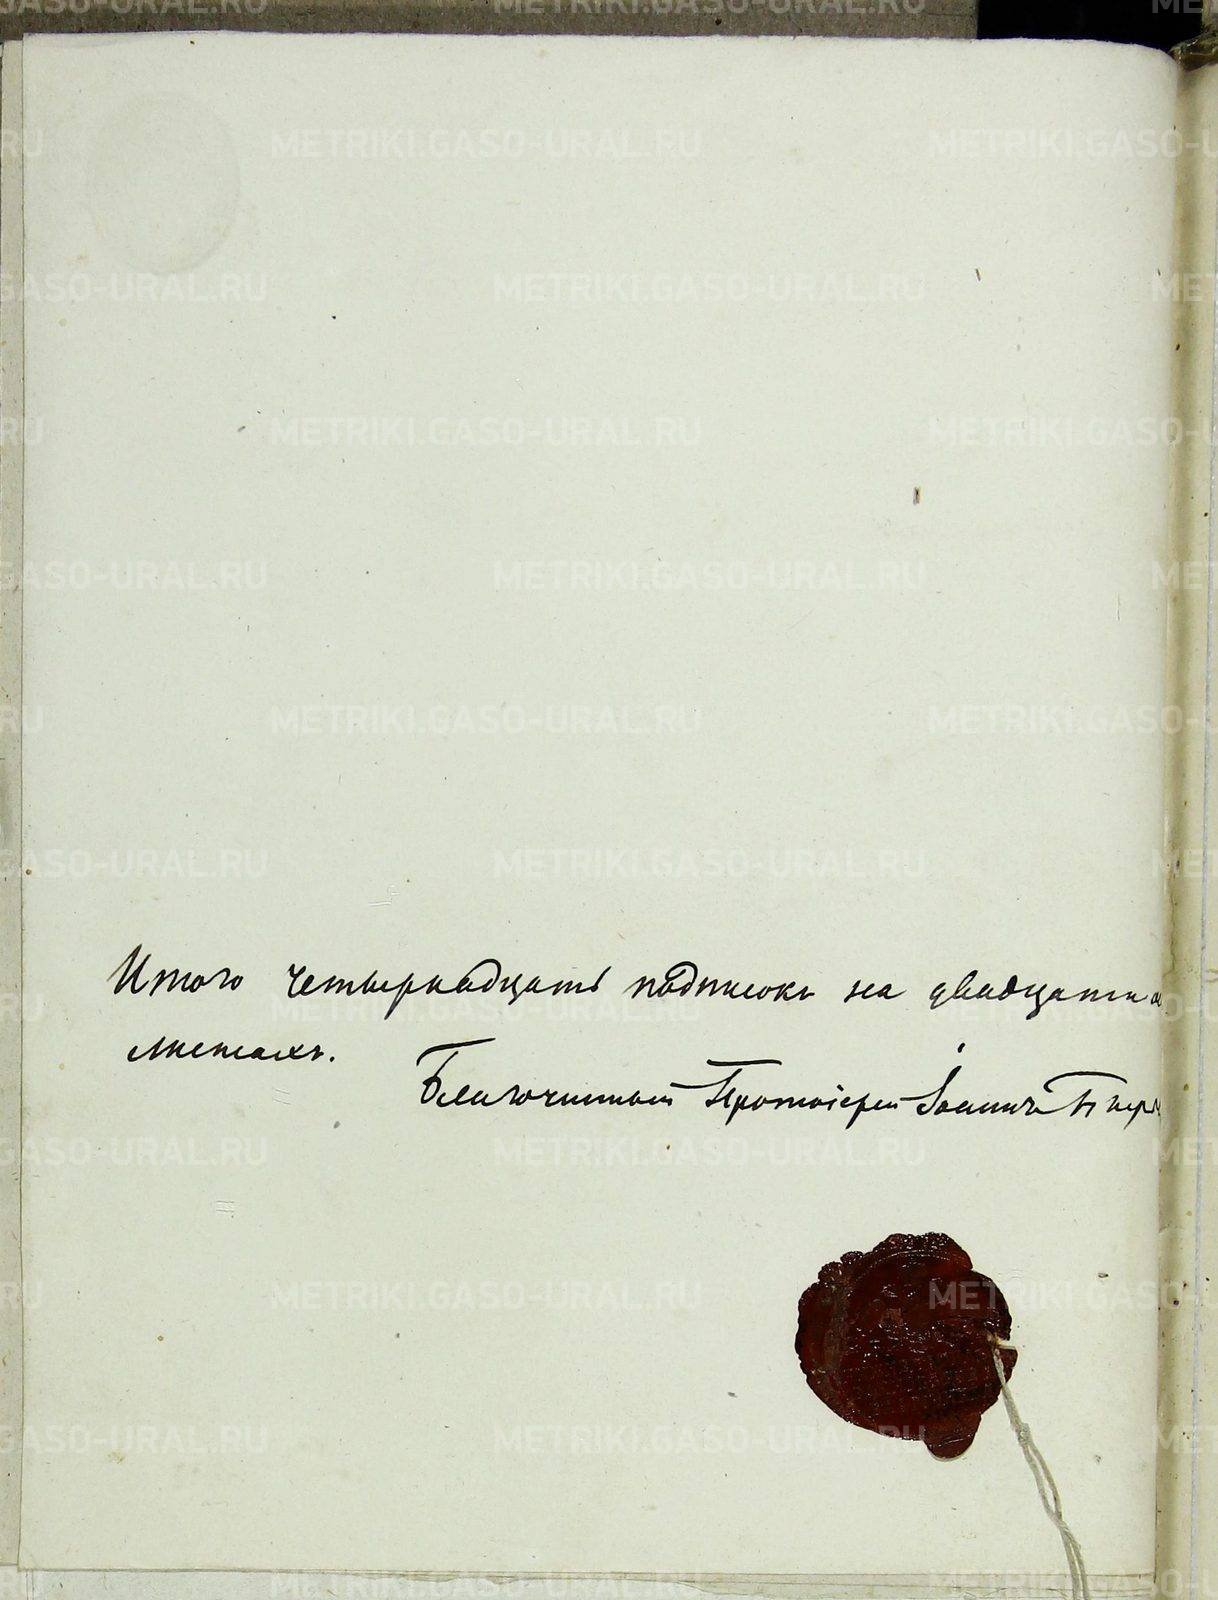 Итого четырнадцать подписокъ на двадцати
листахъ.
Благочинный Протоіерей Іоаннъ
METRIKI.GASO-URAL.RU